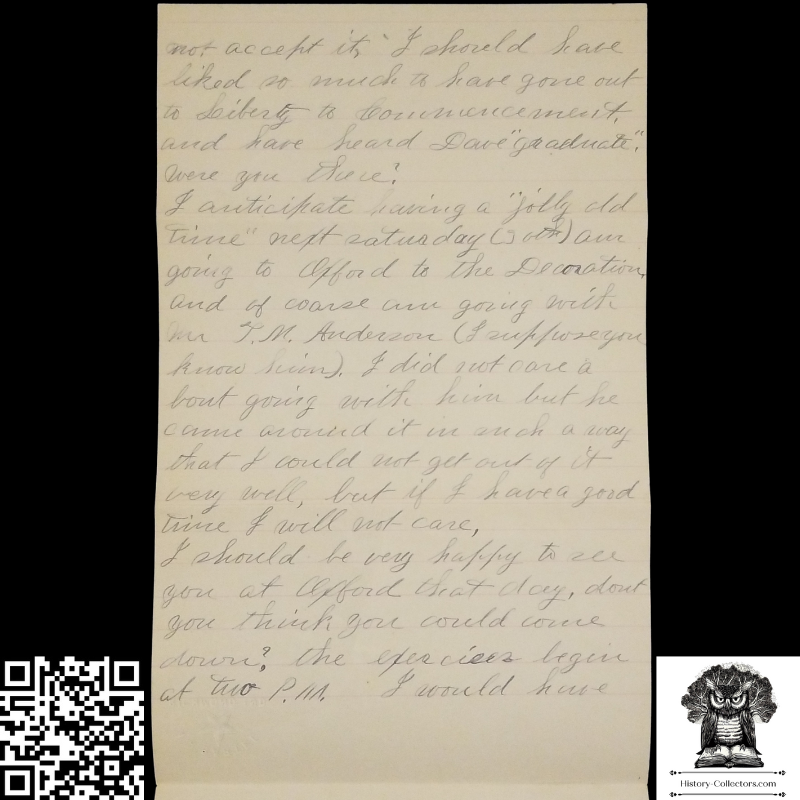 not accept it," I should have
liked so much to have gone out
to Liberty to Commencement,
and have heard Dave "graduate".
Were you there?
I anticipate having a "jolly old
time" next saturday (30th) am
going to Oxford to the Decoration,
and of coarse am going with
Mr T.M. Anderson (I suppose you
know him). I did not care a
bout going with him but he
came around it in such a way
that I could not get out of it
very well, but if I have a good
time I will not care,
I should be very happy to see
you at Oxford that day, dont
you think you could come
down? the exercises begin
at two P.M. I would have
History-Collectors.com